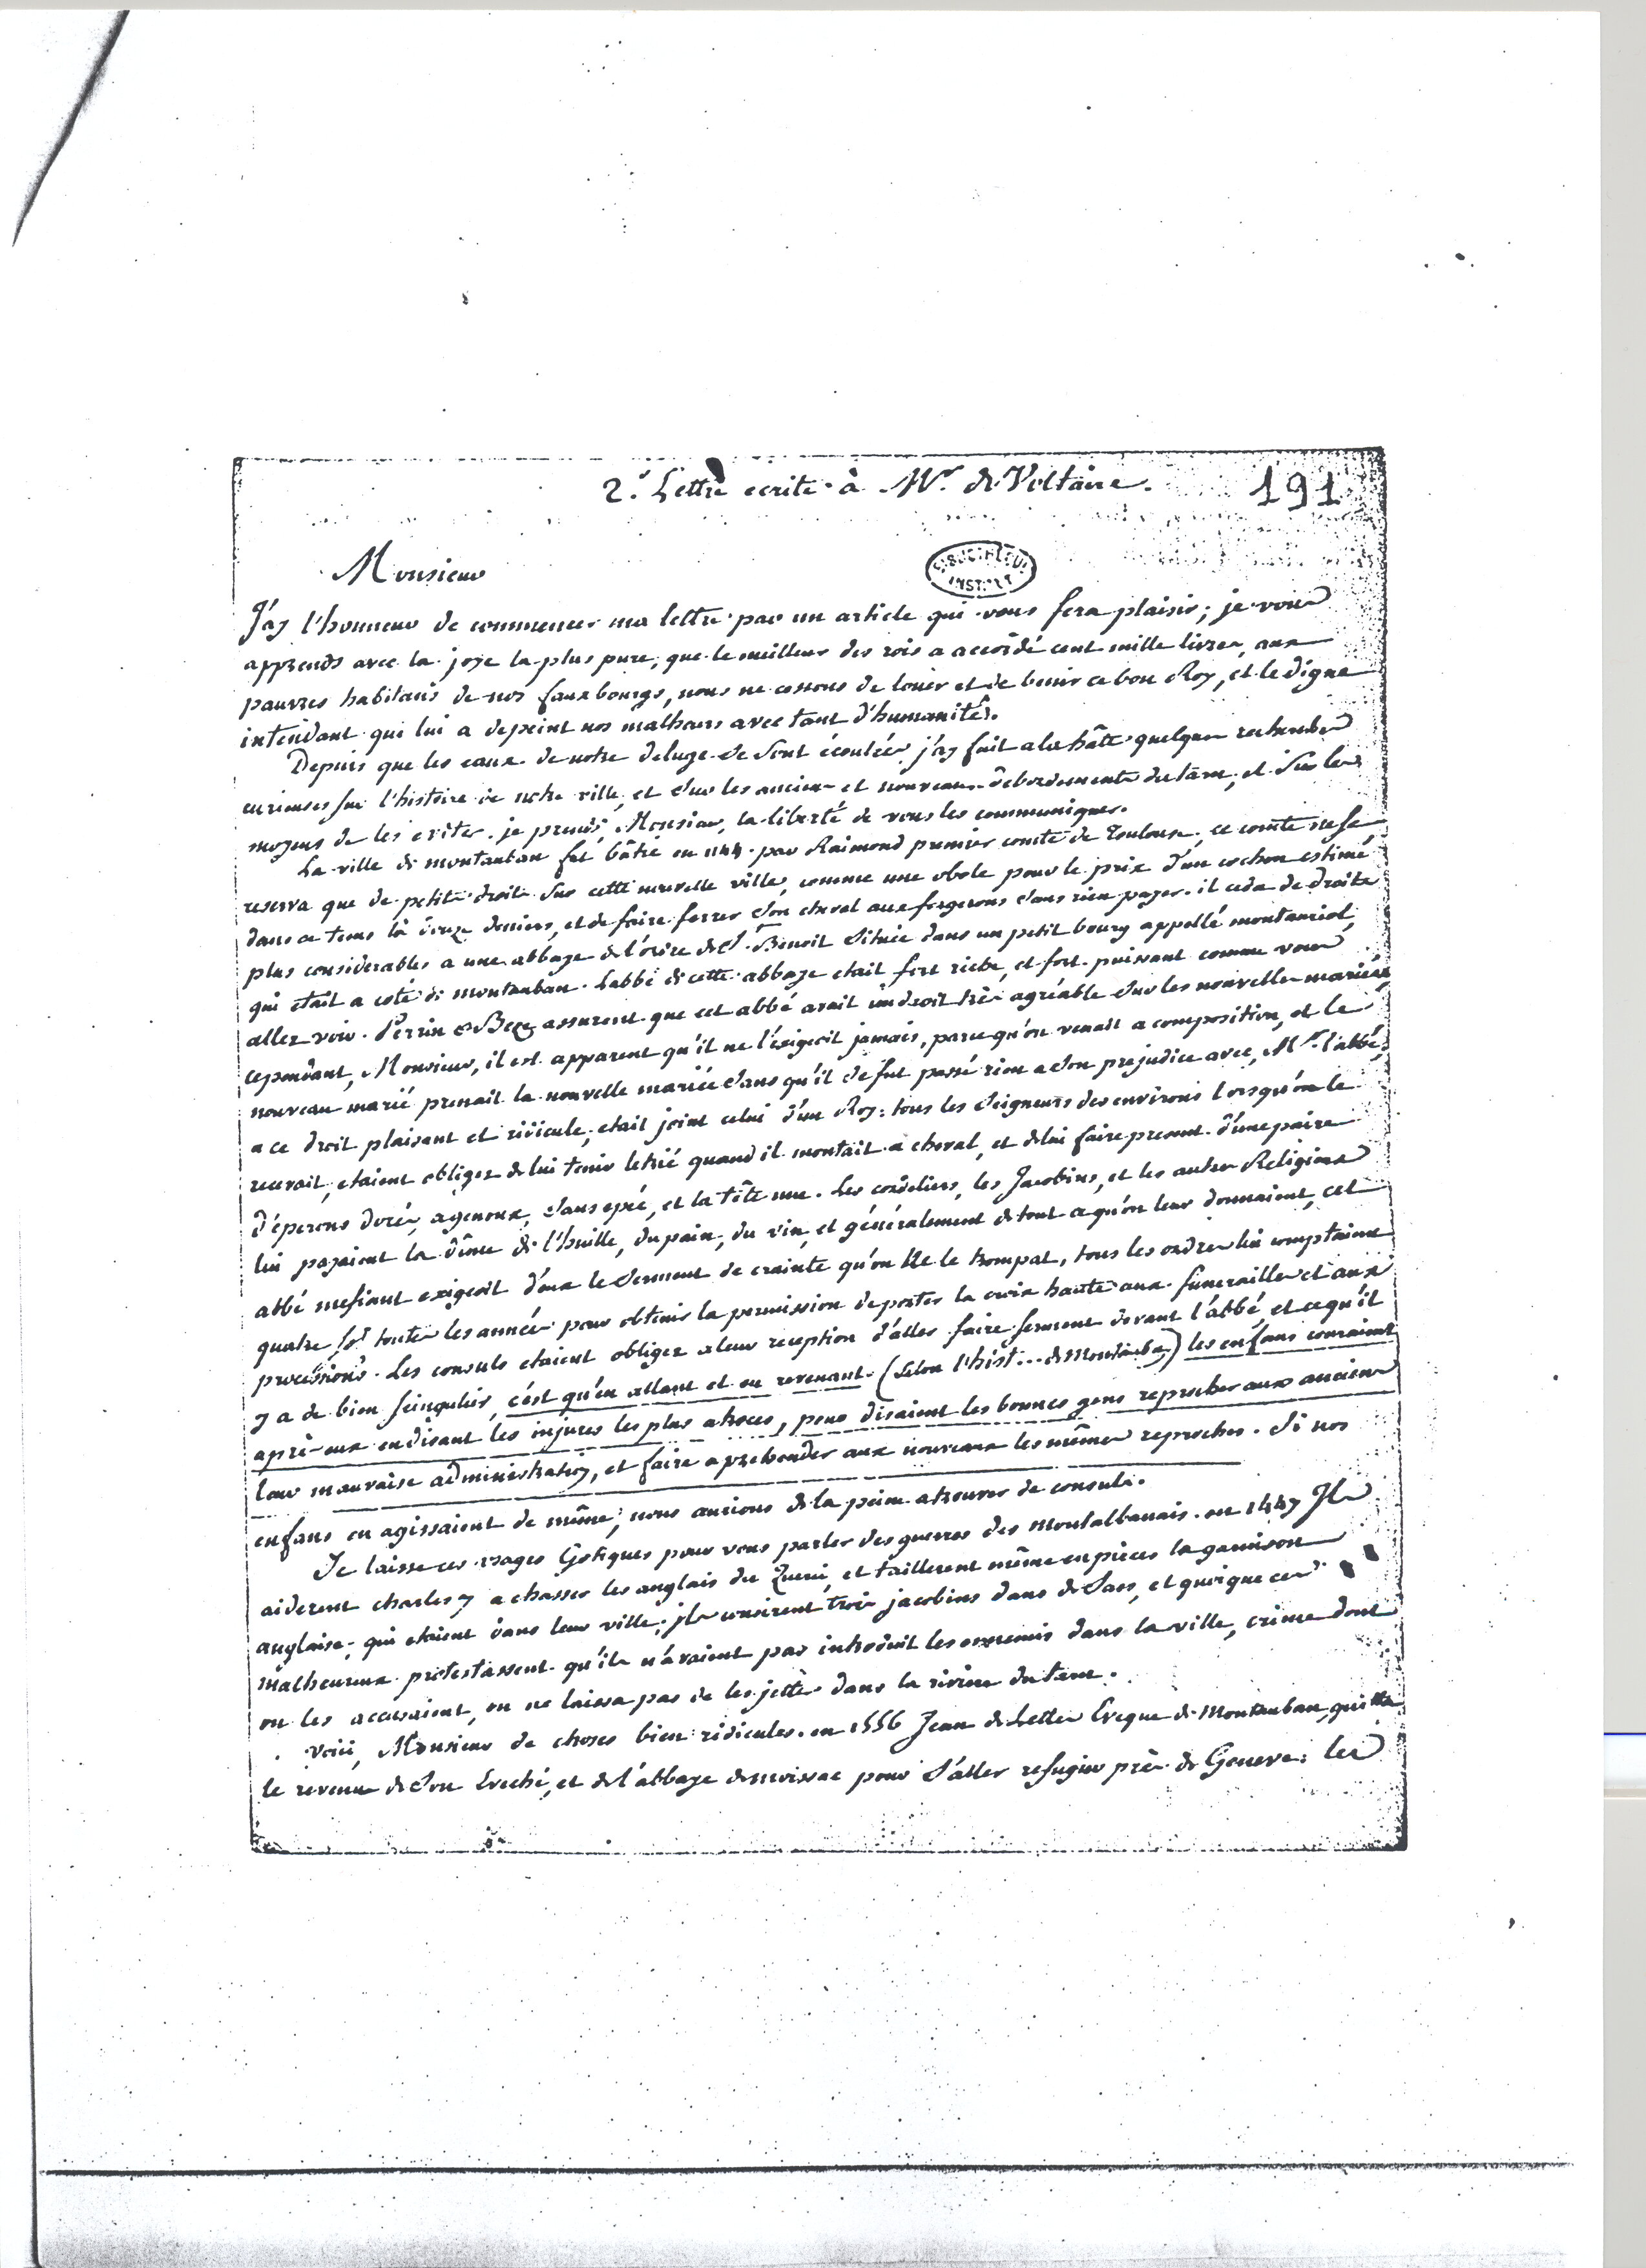 2.e Lettre ecrite à Mr. de Voltaire. 191
BIBLIOTHEQUE
INSTITUT
Monsieur
J'ay l'honneur de commencer ma lettre par un article qui vous fera plaisir; je vous
apprends avec la joye la plus pure, que le meilleur des rois a accordé cent mille livres, aux
pauvres habitans de nos fauxbourgs, nous ne cessons de louer et de benir ce bon Roy, et le digne
intendant qui lui a depeint nos malheurs avec tant d'humanité.
Depuis que les eaux de notre deluge se sont écoulées, j'ay fait a la hâte quelques recherches
curieuses sur l'histoire de notre ville, et sur les anciens et nouveaux debordements du tarn, et sur les
moyens de les eviter. je prends, Monsieur, la liberté de vous les communiquer.
La ville de montauban fut bâtie en 1144. par Raimond premier comte de Toulouse, ce comte ne se
reserva que de petits droits sur cette nouvelle ville, comme une obole pour le prix d'un cochon estimé
dans ce tems là douze deniers, et de faire ferrer son cheval aux forgerons sans rien payer. il ceda de droits
plus considerables a une abbaye de l'ordre de St. Benoit située dans un petit bourg appellé montauriol,
qui était a coté de montauban. l'abbé de cette abbaye etait fort riche, et fort puissant comme vous
allez voir. Perrin et Beze assurent que cet abbé avait un droit très agréable sur les nouvelles mariées
cependant, Monsieur, il est apparent qu'il ne l'exigeoit jamais, parce qu'on venait a composition, et le
nouveau marié prenait la nouvelle mariée sans qu'il se fut passé rien a son prejudice avec, Mr. l'abbé,
a ce droit plaisant et ridicule, etait joint celui d'un Roy: tous les seigneurs des environs lorsqu'on le
recevait, etaient obligez de lui tenir letrié quand il montait a cheval, et de lui faire present d'une paire
d'éperons dorés, agenoux, sans epée, et la tête nue. Les cordeliers, les Jacobins, et les autres Religieux
lui payaient la dîme de l'huille, du pain, du vin, et généralement de tout ce qu'on leur donnaient, cet
abbé mefiant exigeoit d'eux le serment de crainte qu'on ne le trompat, tous les ordres lui comptaient
quatre st toutes les années pour obtenir la permission de porter la croix haute aux funerailles et aux
processions. Les consuls etaient obligez a leur reception d'aller faire serment devant l'abbé et ce qu'il
y a de bien singulier, c'est qu'en allant et en revenant. (selon l'hist... de Montauban) les enfans couraient
après eux en disant les injures les plus atroces, pour disaient les bonnes gens reprocher aux anciens
leur mauvaise administration, et faire aprehender aux nouveaux les mêmes reproches. Si nos
enfans en agissaient de même, nous aurions de la peine a trouver de consuls.
Je laisse ces usages Gotiques pour vous parler des guerres des montalbanais. en 1447 Ils
aiderent charles 7 a chasser les anglais du Querci, et taillerent même en pieces la garnison
anglaise, qui etaient dans leur ville, ils cousirent trois jacobins dans de sacs, et quoique ces
malheureux protestassent qu'ils n'avaient pas introduit les ennemis dans la ville, crime dont
on les accusaient, on ne laissa pas de les jetter dans la riviere du tarn.
voici, Monsieur de choses bien ridicules. en 1556 Jean de Lettes Eveque de Montauban, quitta
le revenu de son Eveché, et de l'abbaye de moissac pour s'aller refugier près de Geneve; les